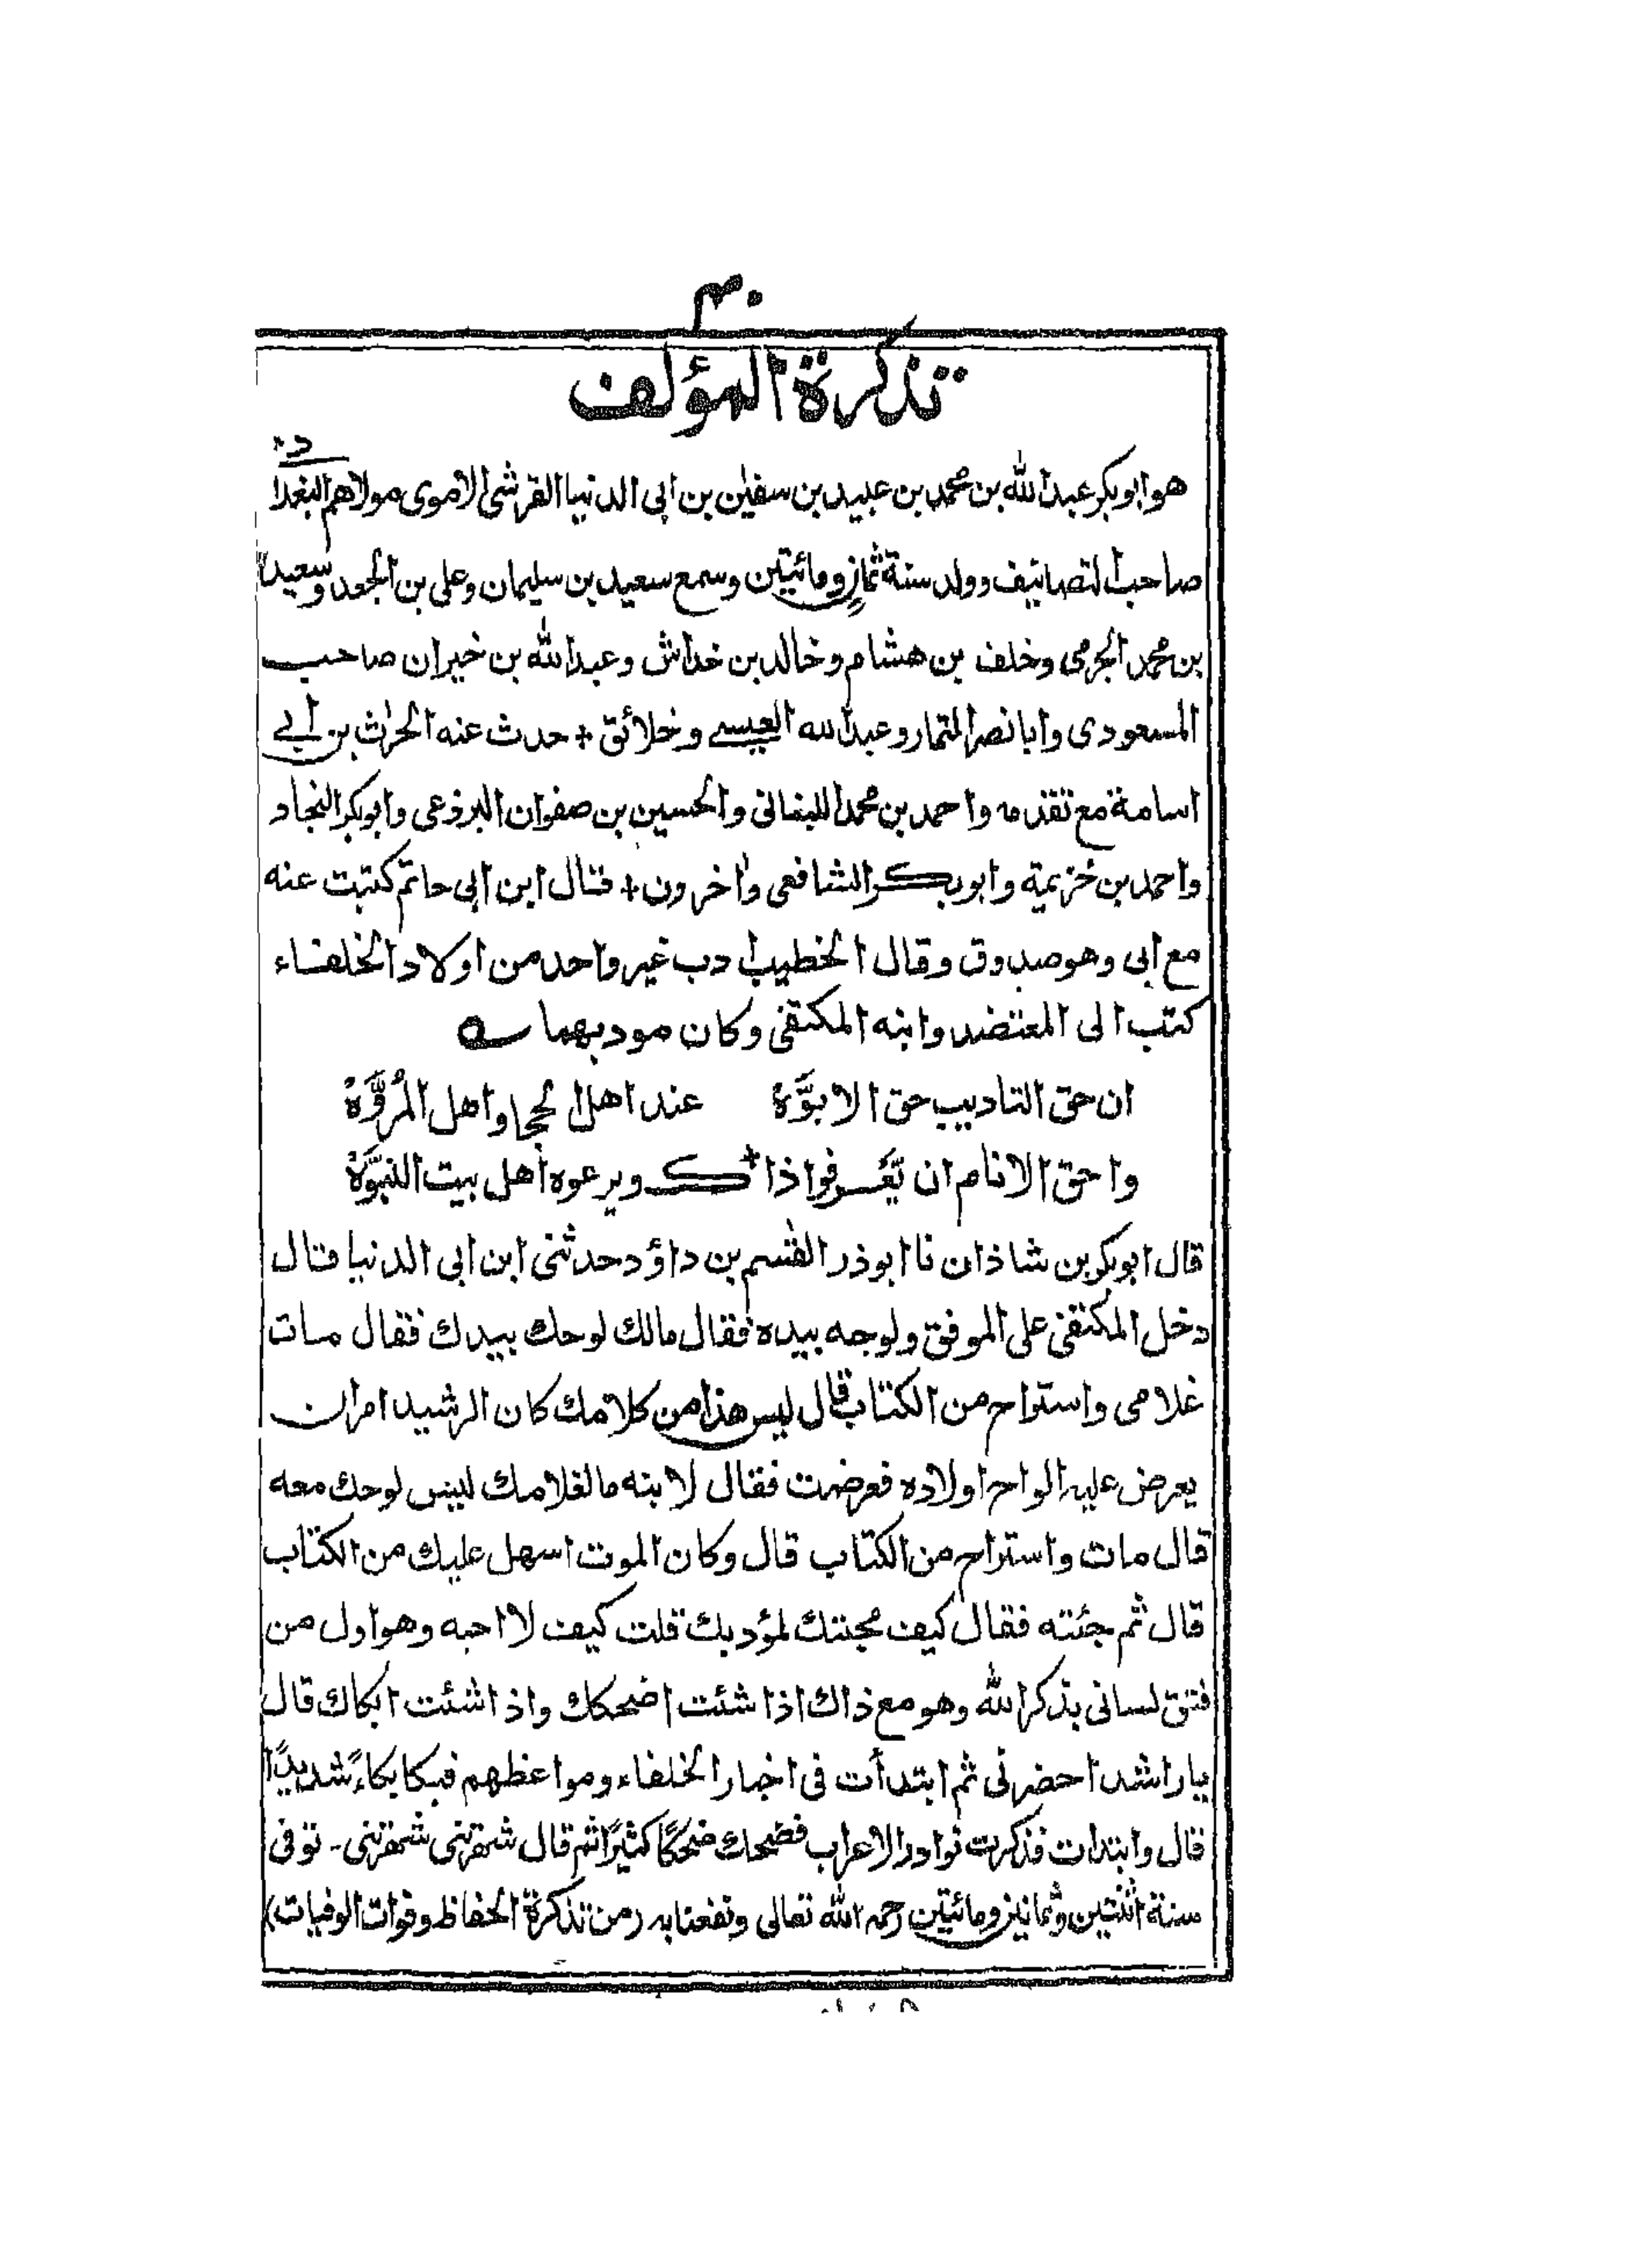 تذكرة المؤلف
هو ابوبكر عبد الله بن محمد بن عبيد بن سفيٰن بن ابی الدنیا القرشی الاموی مولاهم البغدا
صاحب التصانیف وولد سنة ثمان ومائیتین وسمع سعید بن سلیمان وعلی بن الجعد وسعیدا
بن محمد الجرمی وخلف بن هشام وخالد بن خداش وعبد الله بن خیران صاحب
المسعودی وابا نصر التمار وعبد الله العیسے وخلائق + حدث عنه الحٰرث بن ابے
اسامة مع تقدمه واحمد بن محمد اللبنانی والحسین بن صفوان البرذعی وابوبکر النجاد
واحمد بن خزیمة وابوبکر الشافعی واٰخرون + قال ابن ابی حاتم کتبت عنه
مع ابی وهو صدوق وقال الخطیب ادب غیر واحد من اولاد الخلفاء
کتب الی المعتضد وابنه المکتفی وکان مودبهما ؎
ان حق التادیب حق الابوَّة عند اهل الحجا واهل المُروَّة
واحق الانام ان یَّعرفوا ذاک ویرعوه اهل بیت النبوَّة
قال ابوبکر بن شاذان نا ابوذر القٰسم بن داؤد حدثنی ابن ابی الدنیا قال
دخل المکتفی علی الموفق ولوحه بیده فقال مالك لوحك بیدك فقال مات
غلامی واستراح من الکتاب قال لیس هذا من کلامك کان الرشید امر ان
یعرض علیه الواح اولاده فعرضت فقال لابنه ما لغلامك لیس لوحك معه
قال مات واستراح من الکتاب قال وکان الموت اسهل علیك من الکتاب
قال ثم جئته فقال کیف محبتك لمؤدبك قلت کیف لا احبه وهو اول من
فتق لسانی بذکر الله وهو مع ذاك اذا شئت اضحکك واذا شئت ابکاك قال
یا راشد احضرنی ثم ابتدأت فی اخبار الخلفاء ومواعظهم فبکا بکاءً شدیدًا
قال وابتدات فذکرت نوادر الاعراب فضحك ضحکًا کثیرًا ثم قال شهرتنی شهرتنی - توفی
سنة اثنتین وثمانین ومائیتین رحمه الله تعالی ونفعنا به (من تذکرة الحفاظ وفوات الوفیات)